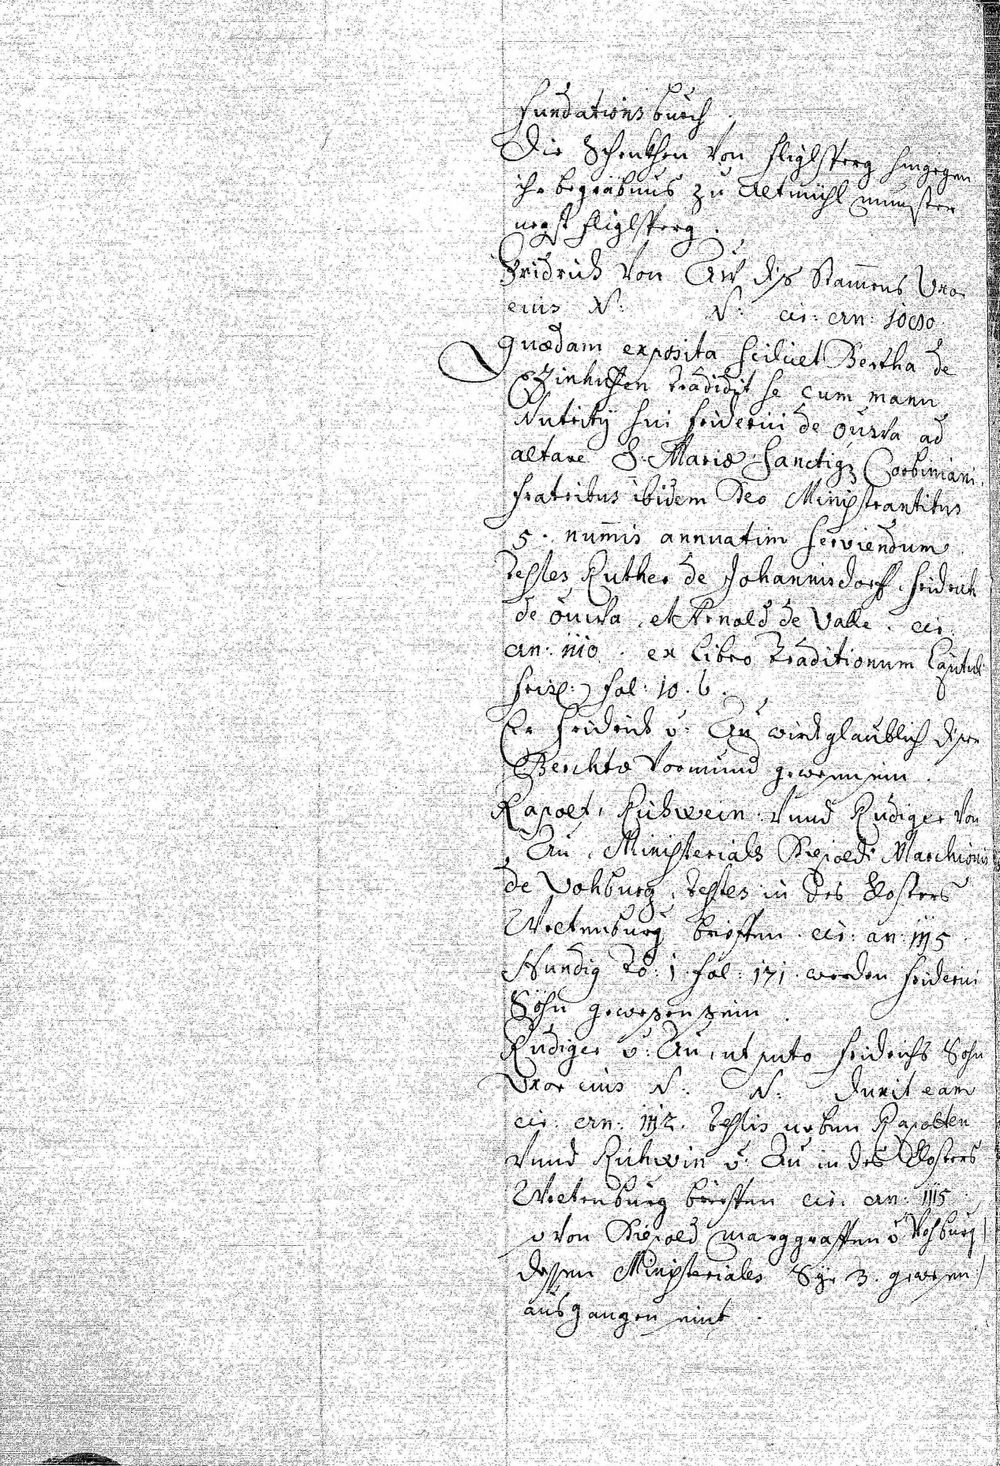 Fundations buech.
Die Schenkhen von Fliglsperg hingegen
ihr begräbnus zu Altmühl münster
negst Fliglsperg.
Fridrich von Aw diss Stammens Uxor
eius N: N: cir: an: 1080
Quædam exposita scilicet Bertha de
tradidit se cum manu
Nutritij sui Friderici de ouwa ad
altare S. Mariæ Sanctiq3 Corbiniani
fratribus ibidem Deo Ministrantibus
5. num̄is annuatim serviendum.
Testes Ruther de Johannisdorf, Fridrich
de ouwa, et Arnold de Valle. cir:
an: 1110. ex libro traditionum Capituli
Frising: fol: 10. b.
Er Fridrich v: Au wirdt glaublich diser
Berchta Vormund gewesen sein.
Rapolt, Richwein vnnd Rudiger von
Au, Ministerials Diepoldi Marchionis
de Vohburg, Testes in des Closters
Weltenburg brieffen cir: an: 1115.
Hundig To: 1. fol: 171. werden Friderici
Söhn gewesen sein.
Rudiger v: Au, ut puto Fridrichs Sohn
Uxor eius N: N: duxit eam
cir: an: 1112. Testis neben Rapolten
vnnd Richwin v: Au in des Closters
Weltenburg brieffen cir: an: 1115
von Diepold marggraffen v: Vohburg /
dessen Ministeriales Sye 3. gewesen /
aussgangen seint.